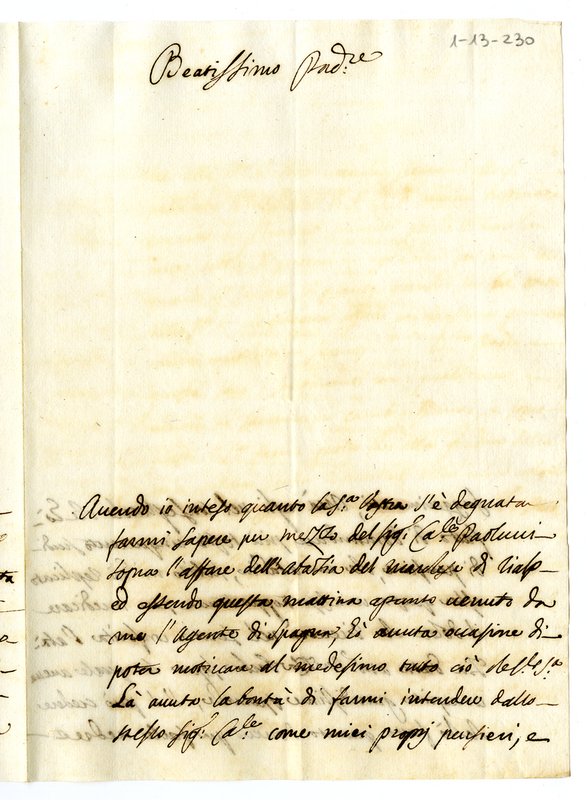 1-13-230
Beatissimo Pad.re
Avendo io inteso quanto la S.a Vostra s'è degnata
farmi sapere per mezzo del Sig.r Ca.le Paolucci
sopra l'affare dell'Abatia del marchese di
ed essendo questa mattina apunto venuto da
me l'Agente di Spagna hò avuta occasione di
poter motivare al medesimo tutto ciò che S. S.a
hà avuta la bontà di farmi intendere dallo
stesso Sig.r Ca.le come miei proprj pensieri, e